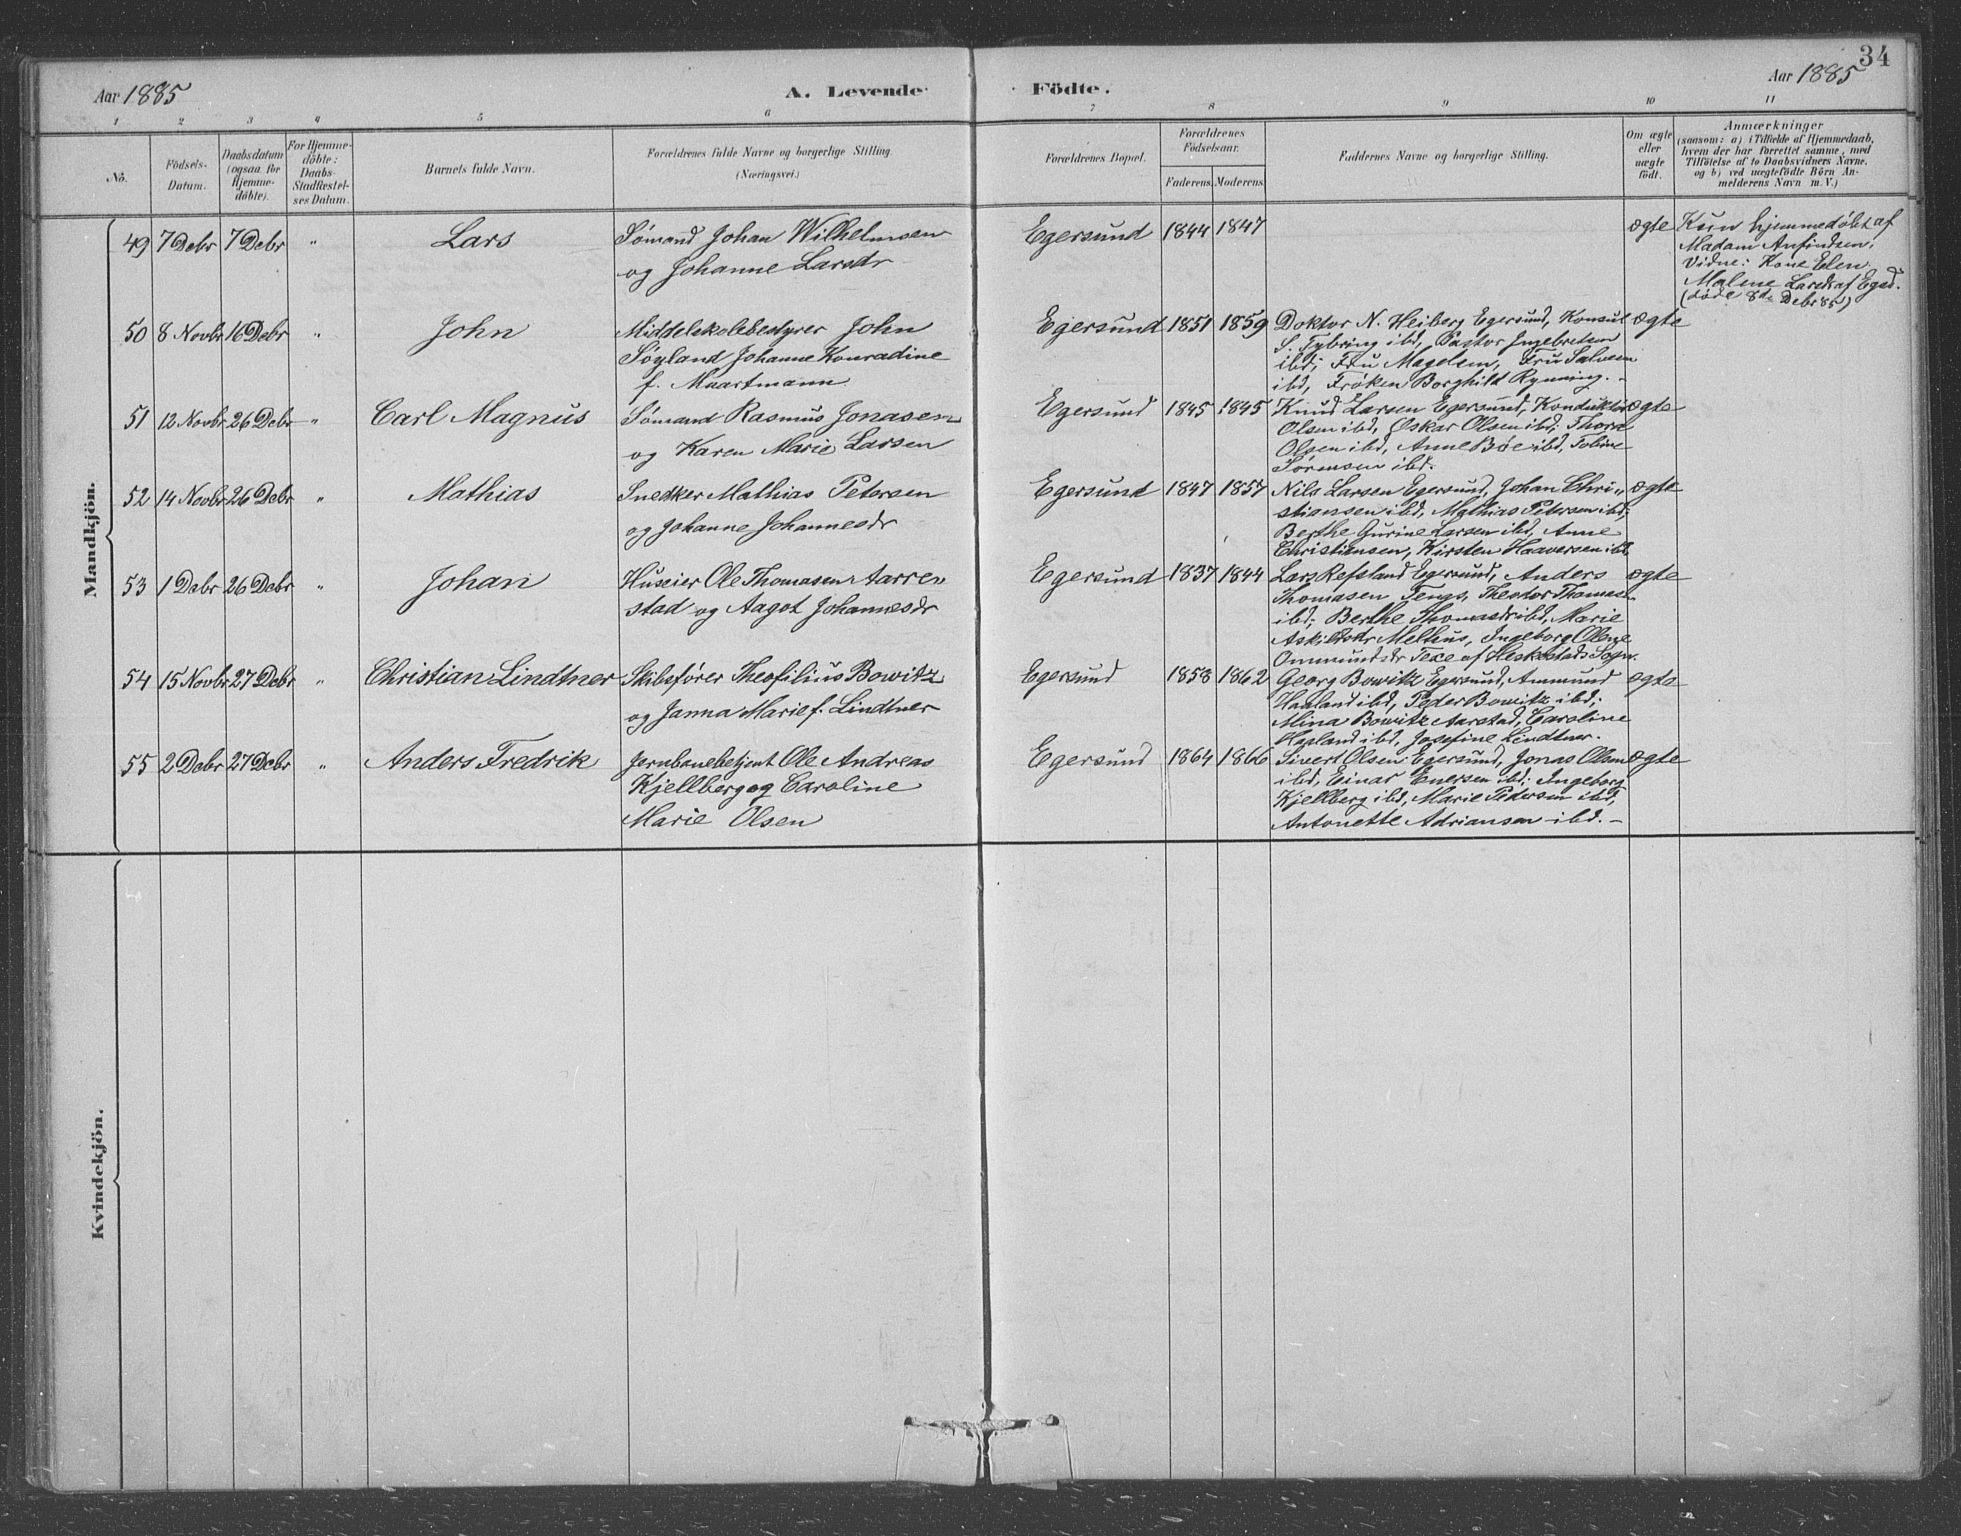 34
Aar 1885
A. Levende
Födte.
Aar 1885
1 2 3 4 5 6 7 8 9 10 11
No.
Födsels-
Datum.
Daabsdatum
(ogsaa for
Hjemme-
döbte).
For Hjemme-
döbte:
Daabs-
Stadfæstel-
ses Datum.
Barnets fulde Navn.
Forældrenes fulde Navne og borgerlige Stilling.
(Næringsvei.)
Forældrenes Bopæl.
Forældrenes
Födselsaar.
Faderens. Moderens.
Faddernes Navne og borgerlige Stilling.
Om ægte
eller
uægte
födt.
Anmærkninger
(saasom: a) i Tilfælde af Hjemmedaab,
hvem der har forrettet samme, med
Tilföielse af to Daabsvidners Navne,
og b) ved uægtefödte Börn An-
melderens Navn m. V.)
Mandkjön.
49 7 Debr 7 Debr " Lars
Sømand Johan Wilhelmsen
og Johanne Larsdr
Egersund 1844 1847
ægte
Kun hjemmedøbt af
Madam Anfindsen.
Vidne: Kone Elen
Malene Larsdr af Egsd.
(døde 8de Debr 85)
50 8 Novbr 16 Debr " John
Middelskolebestyrer John
Søyland Johanne Konradine
f. Maartmann
Egersund 1851 1859
Doktor N. Heiberg Egersund, Konsul
S. Tybring ibd, Pastor Ingebretsen
ibd; Fru Magelsen, Fru Salvesen
ibd, Frøken Borghild Rynning. -
ægte
51 12 Novbr 26 Debr " Carl Magnus
Sømand Rasmus Jonasen
og Karen Marie Larsen
Egersund 1845 1845
Knud Larsen Egersund, Konduktør
Olsen ibd, Oskar Olsen ibd; Thora
Olsen ibd, Anne Bøe ibd, Tobine
Sørensen ibd.
ægte
52 14 Novbr 26 Debr " Mathias
Snedker Mathias Petersen
og Johanne Johannesdr
Egersund 1847 1857
Nils Larsen Egersund, Johan Chri-
stiansen ibd, Mathias Petersen ibd;
Berthe Gurine Larsen ibd, Anne
Christiansen, Kirsten Haaversen ibd.
ægte
53 1 Debr 26 Debr " Johan
Huseier Ole Thomasen Aarre
stad og Aagot Johannesdr
Egersund 1837 1844
Lars Refsland Egersund, Anders
Thomasen Tengs, Theotor Thomas.
ibd; Berthe Thomasdr ibd, Marie
Askildsdr Melhus, Ingeborg Olene
Ommundsdr Texe af Heskestads Sogn.
ægte
54 15 Novbr 27 Debr " Christian Lindtner
Skibsfører Theofilius Bowitz
og Janna Marie f. Lindtner
Egersund 1858 1862
Georg Bowitz Egersund, Ammund
Haaland ibd, Peder Bowitz ibd;
Mina Bowitz Aarstad, Caroline
Haaland ibd, Josefine Lindtner.
ægte
55 2 Debr 27 Debr " Anders Fredrik
Jernbanebetjent Ole Andreas
Kjellberg og Caroline
Marie Olsen
Egersund 1864 1866
Sivert Olsen Egersund, Jonas Olsen
ibd, Einar Enersen ibd; Ingeborg
Kjellberg ibd, Marie Pedersen ibd,
Antonette Adriansen ibd. -
ægte
Kvindekjön.